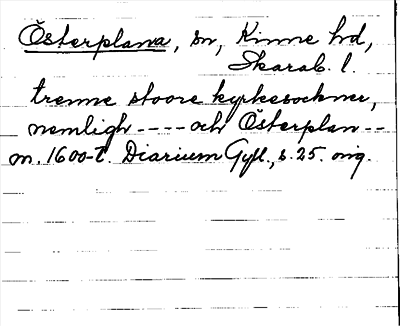 Österplana, sn, Kinne hd,
Skarab. l.
trenne stoore kyrkesockner,
nemligh ---- och Österplan --
m. 1600-t. Diarium Gyll., s. 25. orig.